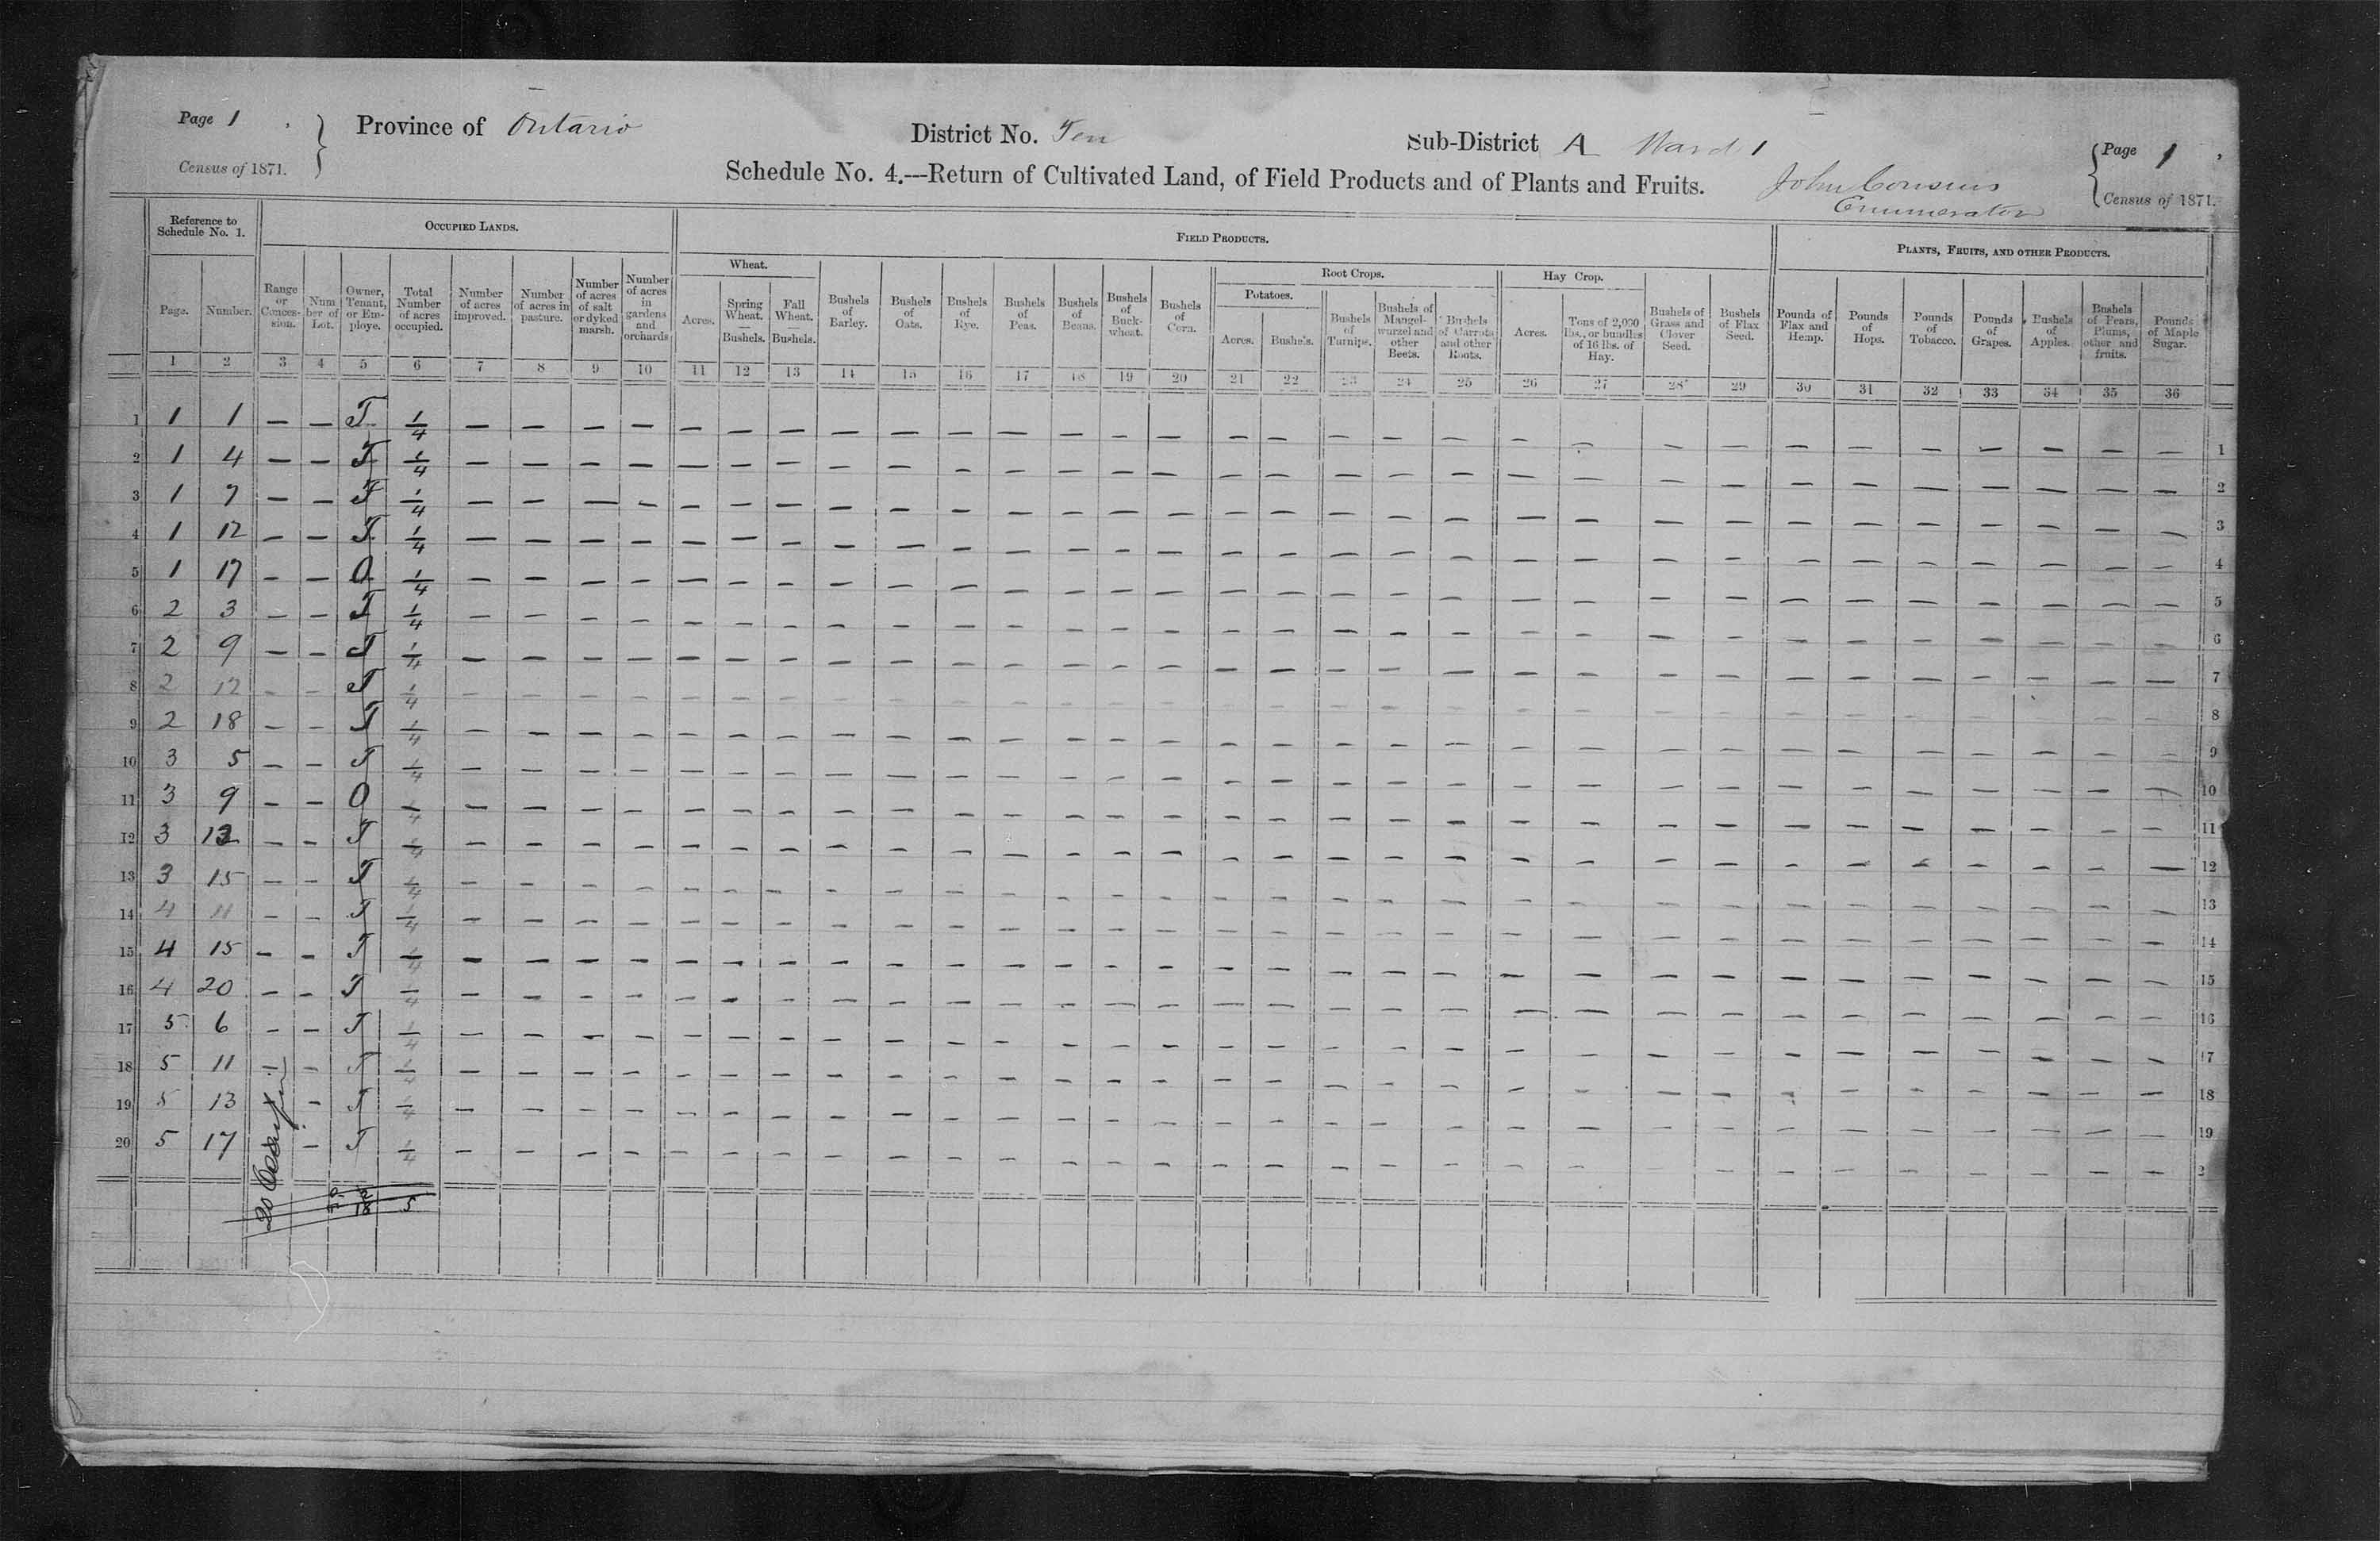 Page 1
Province of Ontario
District No. Ten
Sub-District A Ward 1
Page 1
Census of 1871.
Schedule No. 4.---Return of Cultivated Land, of Field Products and of Plants and Fruits.
John Cousins
Enumerator
Census of 1871.
Reference to Schedule No. 1.
OCCUPIED LANDS.
FIELD PRODUCTS.
PLANTS, FRUITS, AND OTHER PRODUCTS.
Wheat.
Root Crops.
Potatoes.
Hay Crop.
Page.
Number.
Range or Conces-sion.
Num ber of Lot.
Owner, Tenant, or Em-ploye.
Total Number of acres occupied.
Number of acres improved.
Number of acres in pasture.
Number of acres of salt or dyked marsh.
Number of acres in gardens and orchards
Acres.
Spring Wheat. — Bushels.
Fall Wheat. — Bushels.
Bushels of Barley.
Bushels of Oats.
Bushels of Rye.
Bushels of Peas.
Bushels of Beans.
Bushels of Buck-wheat.
Bushels of Corn.
Acres.
Bushels.
Bushels of Turnips.
Bushels of Mangel-wurzel and other Beets.
Bushels of Carrots and other Roots.
Acres.
Tons of 2,000 lbs., or bundles of 16 lbs. of Hay.
Bushels of Grass and Clover Seed.
Bushels of Flax Seed.
Pounds of Flax and Hemp.
Pounds of Hops.
Pounds of Tobacco.
Pounds of Grapes.
Bushels of Apples.
Bushels of Pears, Plums, other and fruits.
Pounds of Maple Sugar.
1 2 3 4 5 6 7 8 9 10 11 12 13 14 15 16 17 18 19 20 21 22 23 24 25 26 27 28 29 30 31 32 33 34 35 36
1 1 1 — — T 1/4 — — — — — — — — — — — — — — — — — — — — — — — — — — — — — — 1
2 1 4 — — T 1/4 — — — — — — — — — — — — — — — — — — — — — — — — — — — — — — 2
3 1 7 — — T 1/4 — — — — — — — — — — — — — — — — — — — — — — — — — — — — — — 3
4 1 12 — — T 1/4 — — — — — — — — — — — — — — — — — — — — — — — — — — — — — — 4
5 1 17 — — O 1/4 — — — — — — — — — — — — — — — — — — — — — — — — — — — — — — 5
6 2 3 — — T 1/4 — — — — — — — — — — — — — — — — — — — — — — — — — — — — — — 6
7 2 9 — — T 1/4 — — — — — — — — — — — — — — — — — — — — — — — — — — — — — — 7
8 2 12 — — T 1/4 — — — — — — — — — — — — — — — — — — — — — — — — — — — — — — 8
9 2 18 — — T 1/4 — — — — — — — — — — — — — — — — — — — — — — — — — — — — — — 9
10 3 5 — — T 1/4 — — — — — — — — — — — — — — — — — — — — — — — — — — — — — — 10
11 3 9 — — O 1/4 — — — — — — — — — — — — — — — — — — — — — — — — — — — — — — 11
12 3 — — T 1/4 — — — — — — — — — — — — — — — — — — — — — — — — — — — — — — 12
13 3 15 — — T 1/4 — — — — — — — — — — — — — — — — — — — — — — — — — — — — — — 13
14 4 11 — — T 1/4 — — — — — — — — — — — — — — — — — — — — — — — — — — — — — — 14
15 4 15 — — T 1/4 — — — — — — — — — — — — — — — — — — — — — — — — — — — — — — 15
16 4 20 — — T 1/4 — — — — — — — — — — — — — — — — — — — — — — — — — — — — — — 16
17 5 6 — — T 1/4 — — — — — — — — — — — — — — — — — — — — — — — — — — — — — — 17
18 5 11 — — T 1/4 — — — — — — — — — — — — — — — — — — — — — — — — — — — — — — 18
19 5 13 — T 1/4 — — — — — — — — — — — — — — — — — — — — — — — — — — — — — — 19
20 5 17 — T 1/4 — — — — — — — — — — — — — — — — — — — — — — — — — — — — — — 2
20
18 5